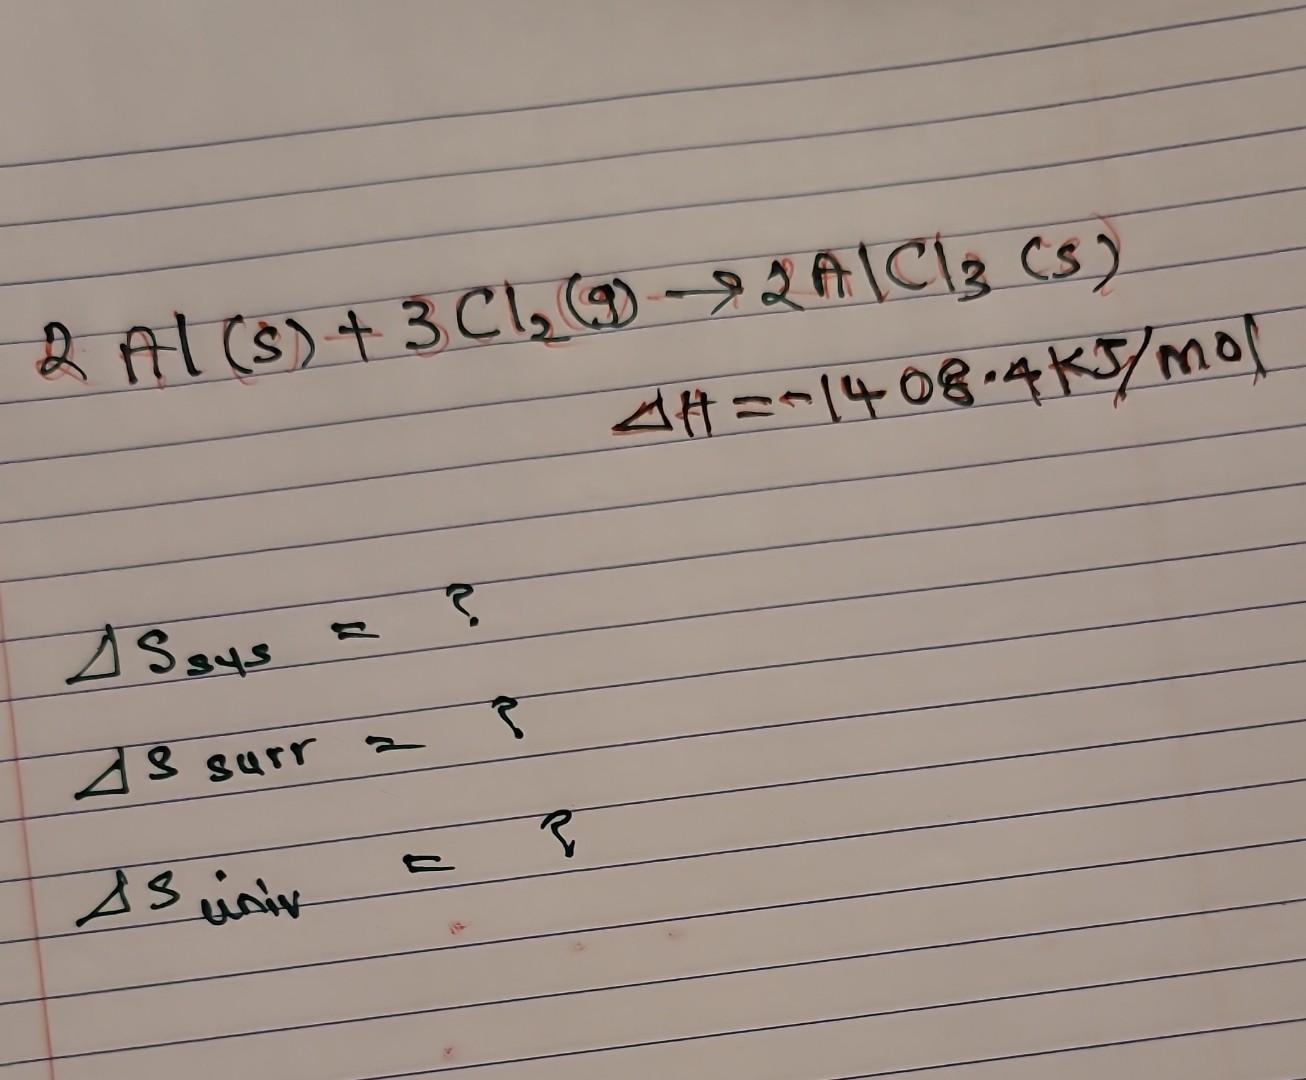 2 Al (s) + 3Cl₂(g) → 2AlCl₃ (s)
ΔH = -1408.4KJ/mol
ΔS sys = ?
ΔS surr = ?
ΔS univ = ?